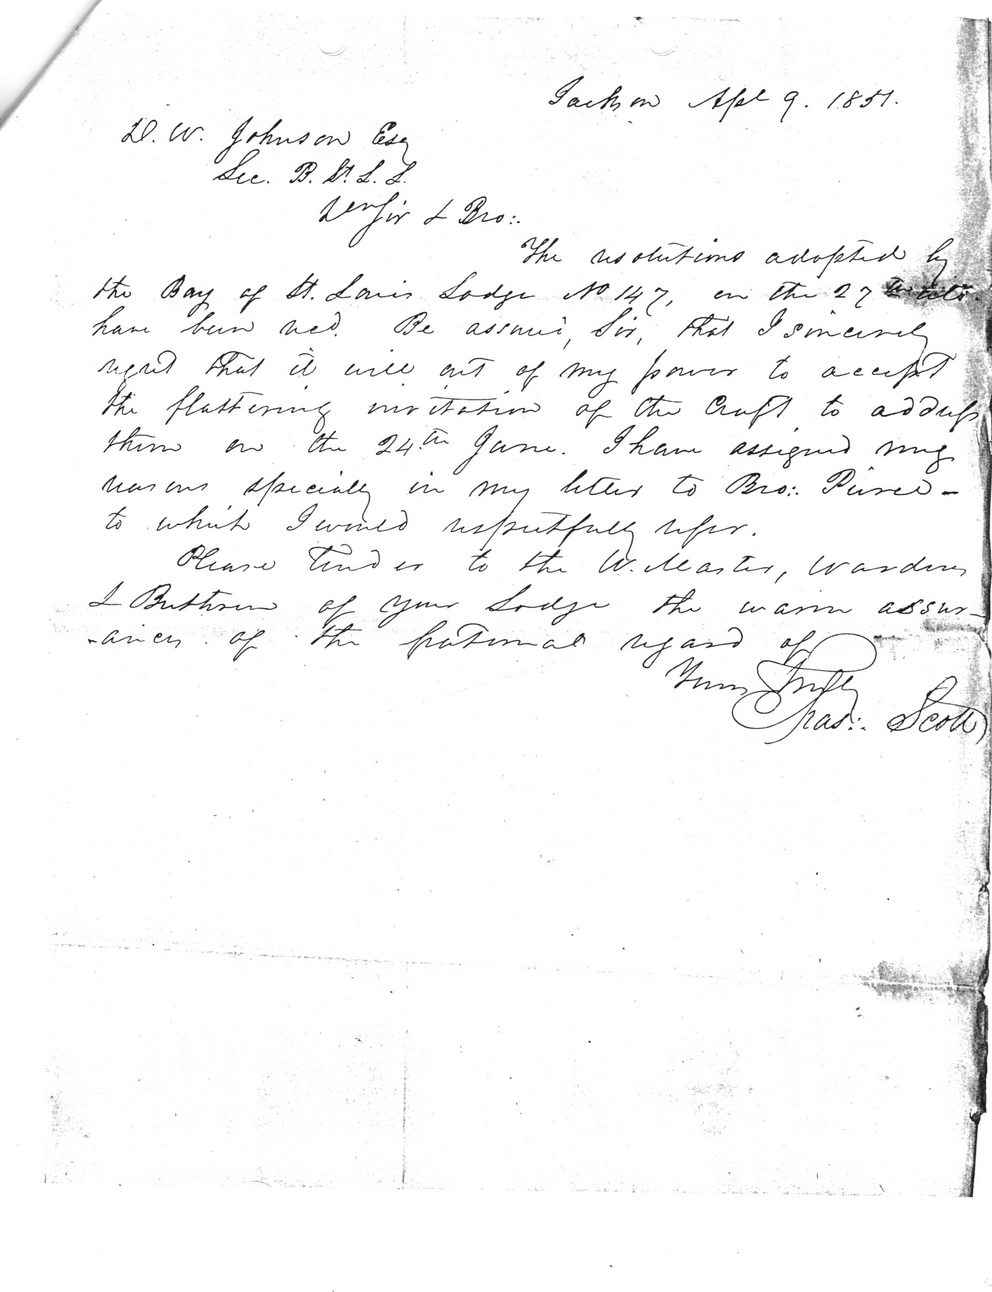 Jackson Apl 9. 1851.
D. W. Johnson Esq
Sec. B. St. L. L.
Dear Sir & Bro:.
The resolutions adopted by
the Bay of St. Louis Lodge No 147, on the 27
have been recd. Be assured, Sir, that I sincerely
regret that it will out of my power to accept
the flattering invitation of the Craft to address
them on the 24th June. I have assigned my
reasons specially in my letter to Bro:. Peirce -
to which I would respectfully refer.
Please tender to the W. Master, Wardens
& Brethren of your Lodge the warm assur-
-ances of the fraternal regard of
Yours Truly
Chas:. Scott